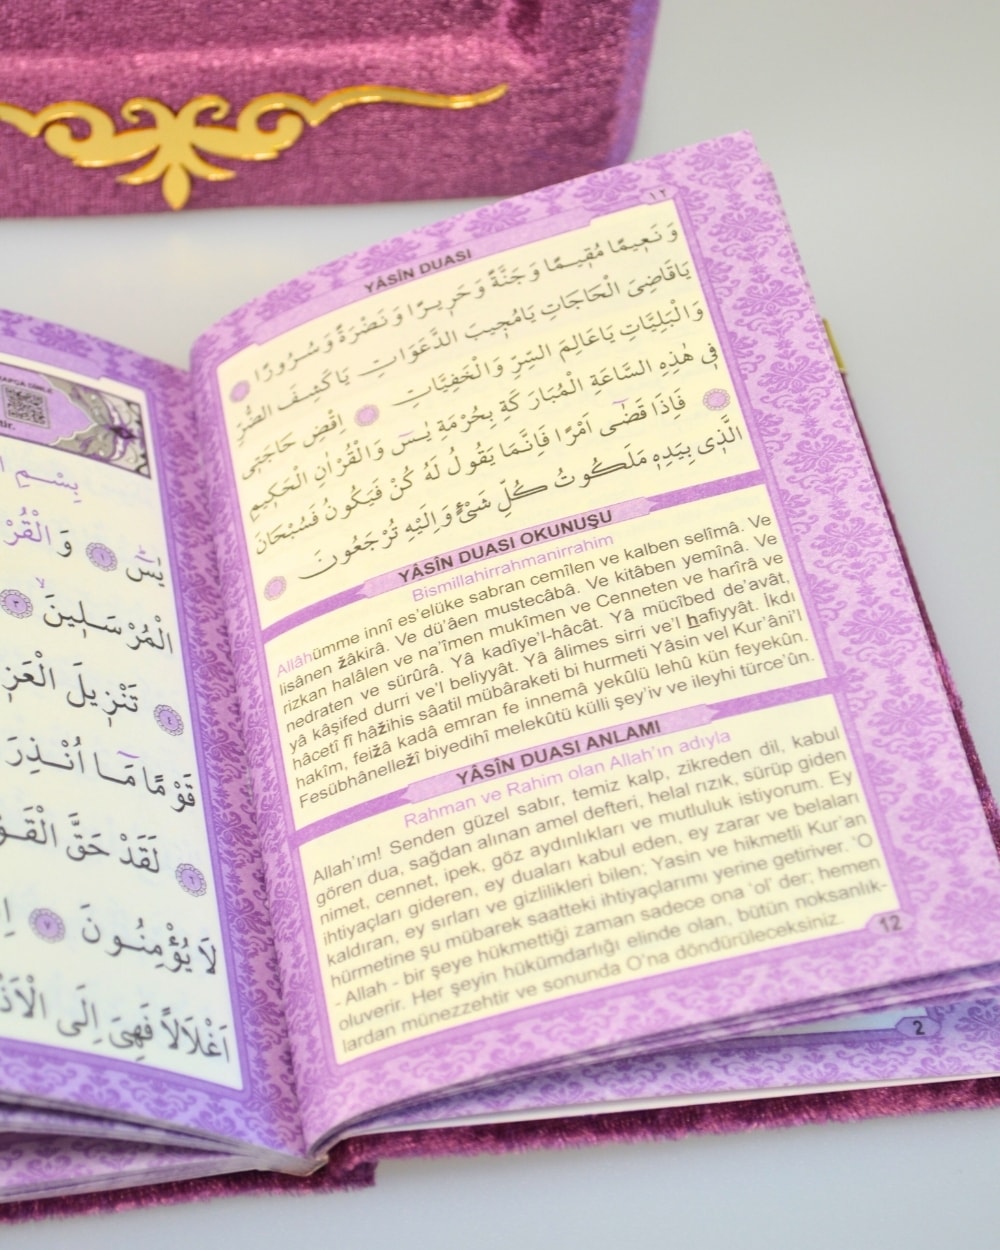 بِسْمِ
يٰسٓ ﴿١﴾ وَ الْقُرْ
الْمُرْسَلٖينَ ﴿٣﴾
﴿٤﴾ تَنْزٖيلَ الْعَزٖ
قَوْمًا مَٓا اُنْذِرَ
﴿٦﴾ لَقَدْ حَقَّ الْقَوْ
لَا يُؤْمِنُونَ ﴿٧﴾ اِ
اَغْلَالًا فَهِىَ اِلَى الْاَذْ
١٢
YÂSÎN DUASI
وَ نَعٖيمًا مُقٖيمًا وَ جَنَّةً وَ حَرٖيرًا وَ نَضْرَةً وَ سُرُورًا
يَاقَاضِىَ الْحَاجَاتِ يَامُجٖيبَ الدَّعَوَاتِ يَا كَشِفَ الضُّرِّ
وَالْبَلِيَّاتِ يَاعَالِمَ السِّرِّ وَالْخَفِيَّاتِ اِقْضِ حَاجَتٖى
فٖى هٰذِهِ السَّاعَةِ الْمُبَارَكَةِ بِحُرْمَةِ يٰسٓ وَالْقُرْاٰنِ الْحَكٖيمِ
فَاِذَا قَضٰٓى اَمْرًا فَاِنَّمَا يَقُولُ لَهُ كُنْ فَيَكُونُ فَسُبْحَانَ
الَّذٖى بِيَدِهٖ مَلَكُوتُ كُلِّ شَىْءٍ وَاِلَيْهِ تُرْجَعُونَ
YÂSÎN DUASI OKUNUŞU
Bismillahirrahmanirrahim
Allâhümme innî es’elüke sabran cemîlen ve kalben selîmâ. Ve
lisânen žâkirâ. Ve dü’âen mustecâbâ. Ve kitâben yemînâ. Ve
rizkan halâlen ve na’îmen mukîmen ve Cenneten ve harîrâ ve
nedraten ve sürûrâ. Yâ kadîye’l-hâcât. Yâ mücîbed de’avât,
yâ kâşifed durri ve’l beliyyât. Yâ âlimes sirri ve’l hafiyyât. İkdı
hâcetî fî hâžihis sâatil mübâraketi bi hurmeti Yâsin vel Kur’âni’l
hakîm, feižâ kadâ emran fe innemâ yekûlü lehû kün feyekûn.
Fesübhânellezî biyedihî melekûtü külli şey’iv ve ileyhi türce’ûn.
YÂSÎN DUASI ANLAMI
Rahman ve Rahim olan Allah’ın adıyla
Allah’ım! Senden güzel sabır, temiz kalp, zikreden dil, kabul
gören dua, sağdan alınan amel defteri, helal rızık, sürüp giden
nimet, cennet, ipek, göz aydınlıkları ve mutluluk istiyorum. Ey
ihtiyaçları gideren, ey duaları kabul eden, ey zarar ve belaları
kaldıran, ey sırları ve gizlilikleri bilen; Yasin ve hikmetli Kur’an
hürmetine şu mübarek saatteki ihtiyaçlarımı yerine getiriver. ‘O
- Allah - bir şeye hükmettiği zaman sadece ona ‘ol’ der; hemen
oluverir. Her şeyin hükümdarlığı elinde olan, bütün noksanlık-
lardan münezzehtir ve sonunda O’na döndürüleceksiniz.
12
2